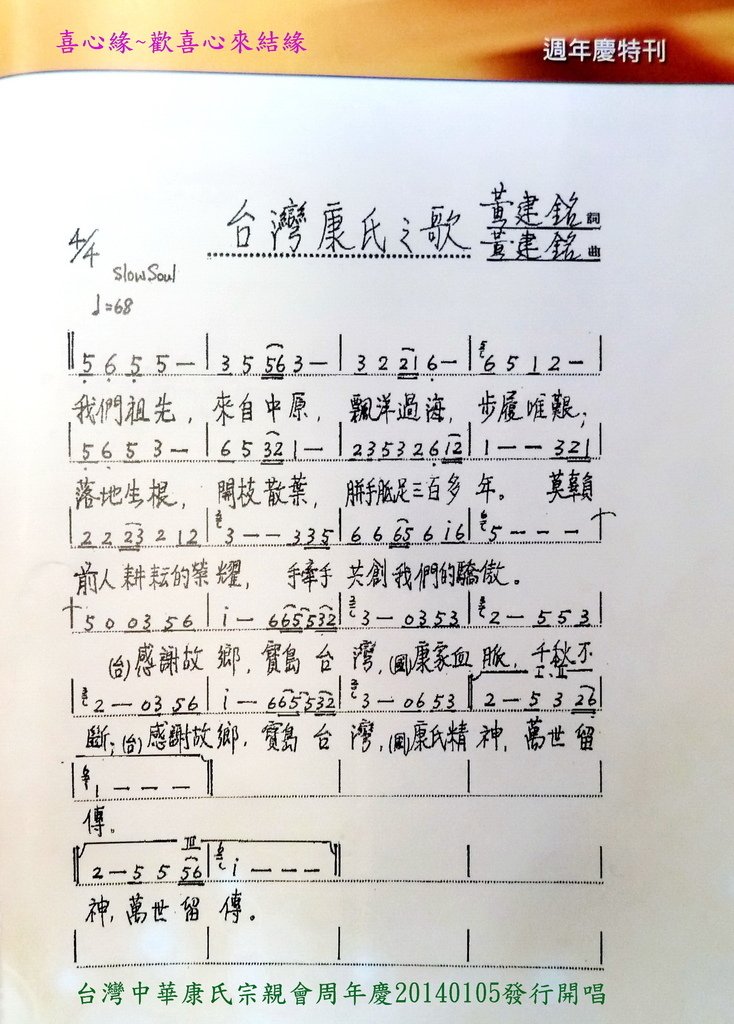 喜心緣~歡喜心來結緣
週年慶特刊
台灣康氏之歌
黃建銘 詞
黃建銘 曲
4/4
Slow Soul
♩=68
5 6 5 5 — | 3 5 56 3 — | 3 2 21 6 — | 6 5 1 2 —
我們祖先，來自中原，飄洋過海，步履唯艱；
5 6 5 3 — | 6 5 32 1 — | 2 3 5 3 2 6 12 | 1 — — 3 21
落地生根，開枝散葉，胼手胝足三百多年。莫辜
2 2 23 2 12 | 3 — — 3 35 | 6 6 65 6 i6 | 5 — — —
前人耕耘的榮耀，手牽手共創我們的驕傲。
5 0 03 56 | i — 665532 | 3 — 03 53 | 2 — 5 5 3
(台)感謝故鄉，寶島台灣，(國)康家血脈，千秋不
I.II
2 — 03 56 | i — 665532 | 3 — 06 53 | 2 — 5 3 26
斷；(台)感謝故鄉，寶島台灣，(國)康氏精神，萬世留
1 — — —
傳。
III
2 — 5 5 56 | i — — —
神，萬世留傳。
台灣中華康氏宗親會周年慶20140105發行開唱